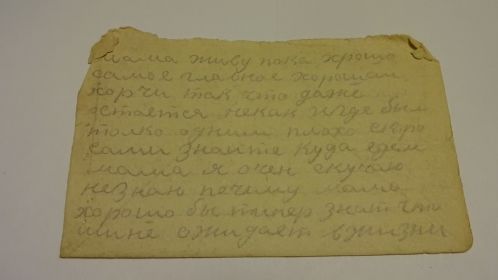 мама живу пока хорошо
самое главное хорошаи
хорчи так что даже
остается некак где был
толко одним плохо скро
сами знаите куда едем
мама я очен скучаю
незнаю почиму мама
хорошо бы типер знат что
мине ожидает вжизни